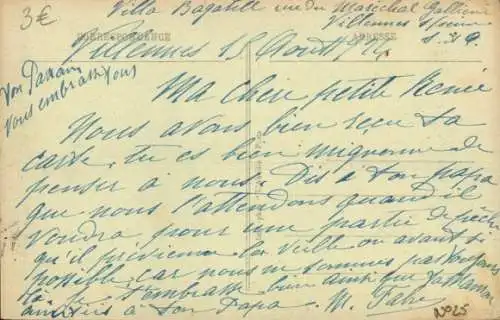 3€
Villa Bagatelle rue du Maréchal Gallieni
Villennes s/ Seine
S. & O.
CORRESPONDANCE
ADRESSE
Villennes 15 Août
Ton Parrain
vous embrasse tous
Ma chère petite Renée
Nous avons bien reçu ta
carte, tu es bien mignonne de
penser à nous. Dis à ton papa
que nous l'attendons quand il
voudra pour une partie de pêche
qu'il prévienne la veille ou avant si
possible, car nous ne sommes pas toujours
là. Je t'embrasse bien ainsi que ta maman
ainsi à ton Papa. M.
No 25